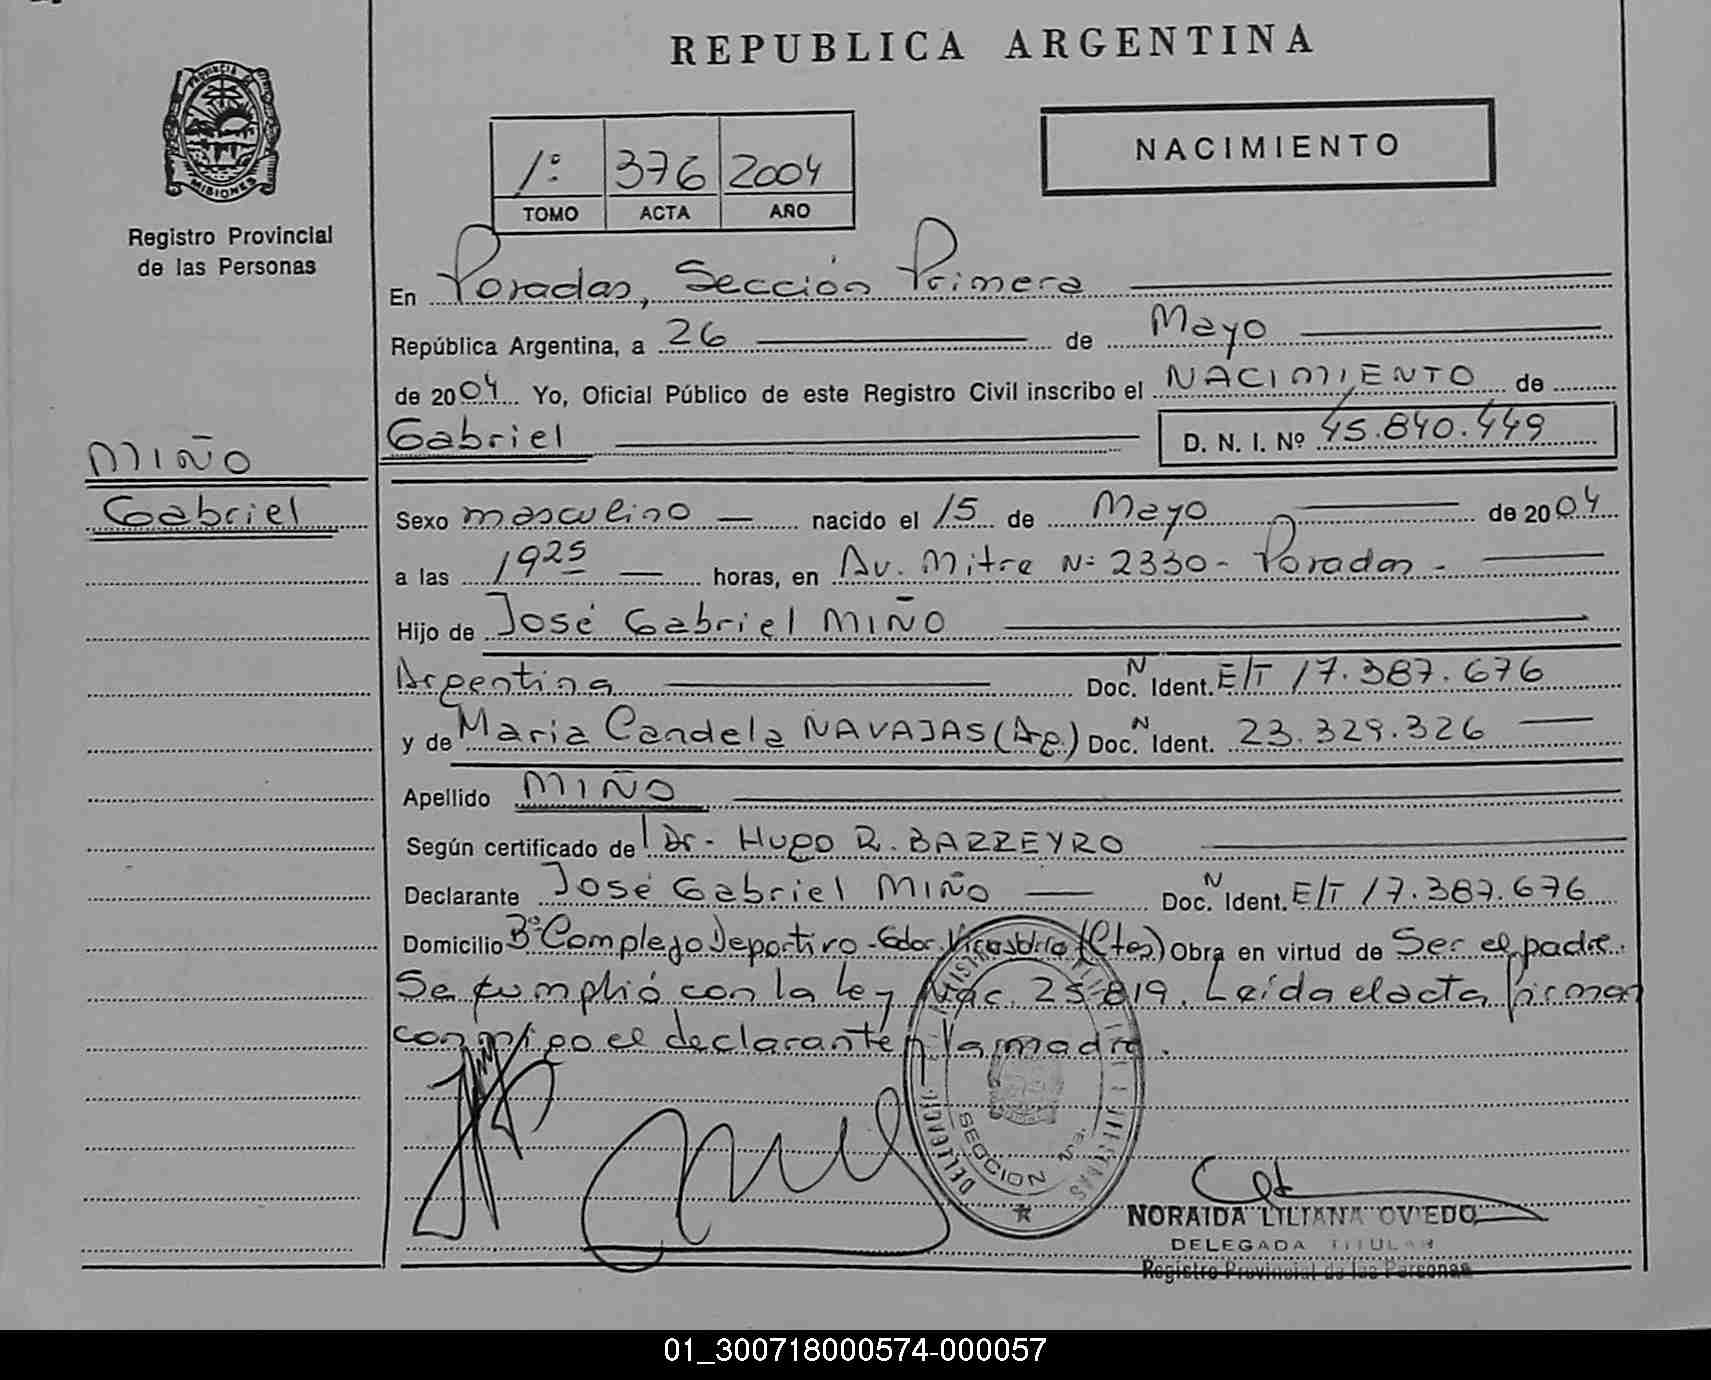 REPUBLICA ARGENTINA
PROVINCIA DE
MISIONES
Registro Provincial
de las Personas
1º 376 2004
TOMO ACTA AÑO
NACIMIENTO
En Posadas, Sección Primera
República Argentina, a 26 de Mayo
de 2004 Yo, Oficial Público de este Registro Civil inscribo el NACIMIENTO de
Gabriel D. N. I. Nº 45.840.449
MIÑO
Gabriel
Sexo masculino nacido el 15 de Mayo de 2004
a las 1925 horas, en Av. Mitre Nº 2330 - Posadas -
Hijo de José Gabriel MIÑO
Argentina Doc. N Ident. E/T 17.387.676
y de Maria Candela NAVAJAS (Arg.) Doc. N Ident. 23.329.326
Apellido MIÑO
Según certificado de Dr. Hugo R. BARREYRO
Declarante José Gabriel MIÑO Doc. N Ident. E/T 17.387.676
Domicilio Bº Complejo Deportivo - Gdor. (Ctes) Obra en virtud de Ser el padre.
Se cumplió con la ley Nac. 25.819. Leída el acta firman
conmigo el declarante y la madre.
SECCION
NORAIDA LILIANA OVIEDO
DELEGADA TITULAR
Registro Provincial de las Personas
01_300718000574-000057